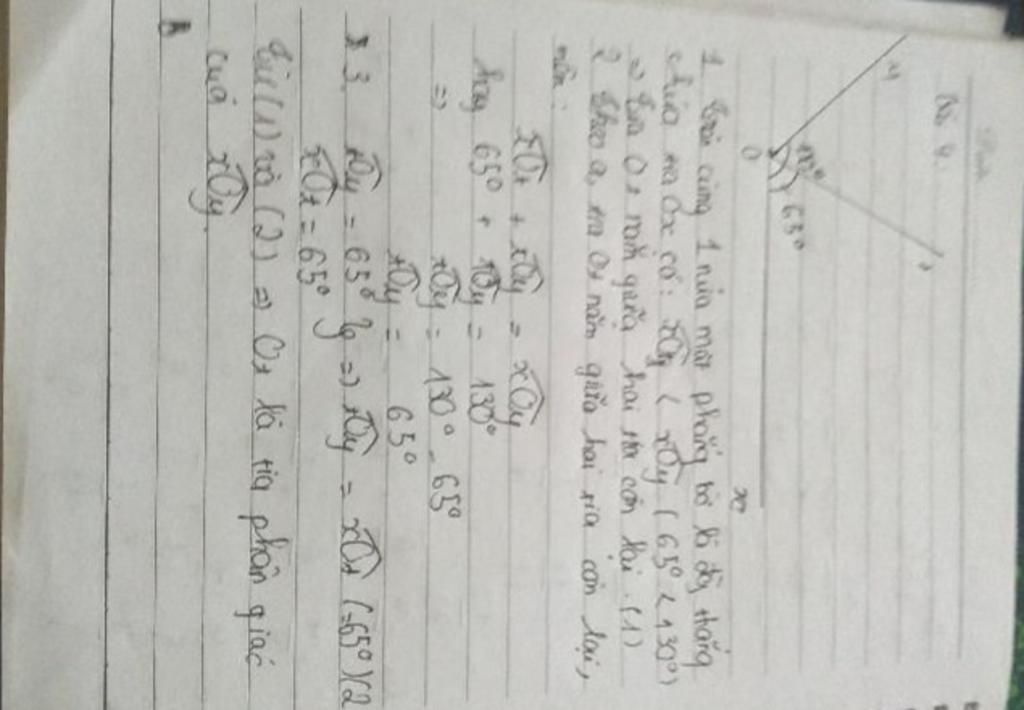 Bài 4.
y
130°
65°
O
t
x
1 Trên cùng 1 nửa mặt phẳng bờ là đg thẳng
chứa tia Ox có: xOt < xOy (65° < 130°)
=> tia Ot nằm giữa hai tia còn lại. (1)
2 Theo a, tia Ot nằm giữa hai tia còn lại,
nên:
xOt + tOy = xOy
hay 65° + tOy = 130°
=> tOy = 130° - 65°
tOy = 65°
3. tOy = 65° => tOy = xOt (=65°) (2
xOt = 65°
Từ (1) và (2) => Ot là tia phân giác
của xOy.